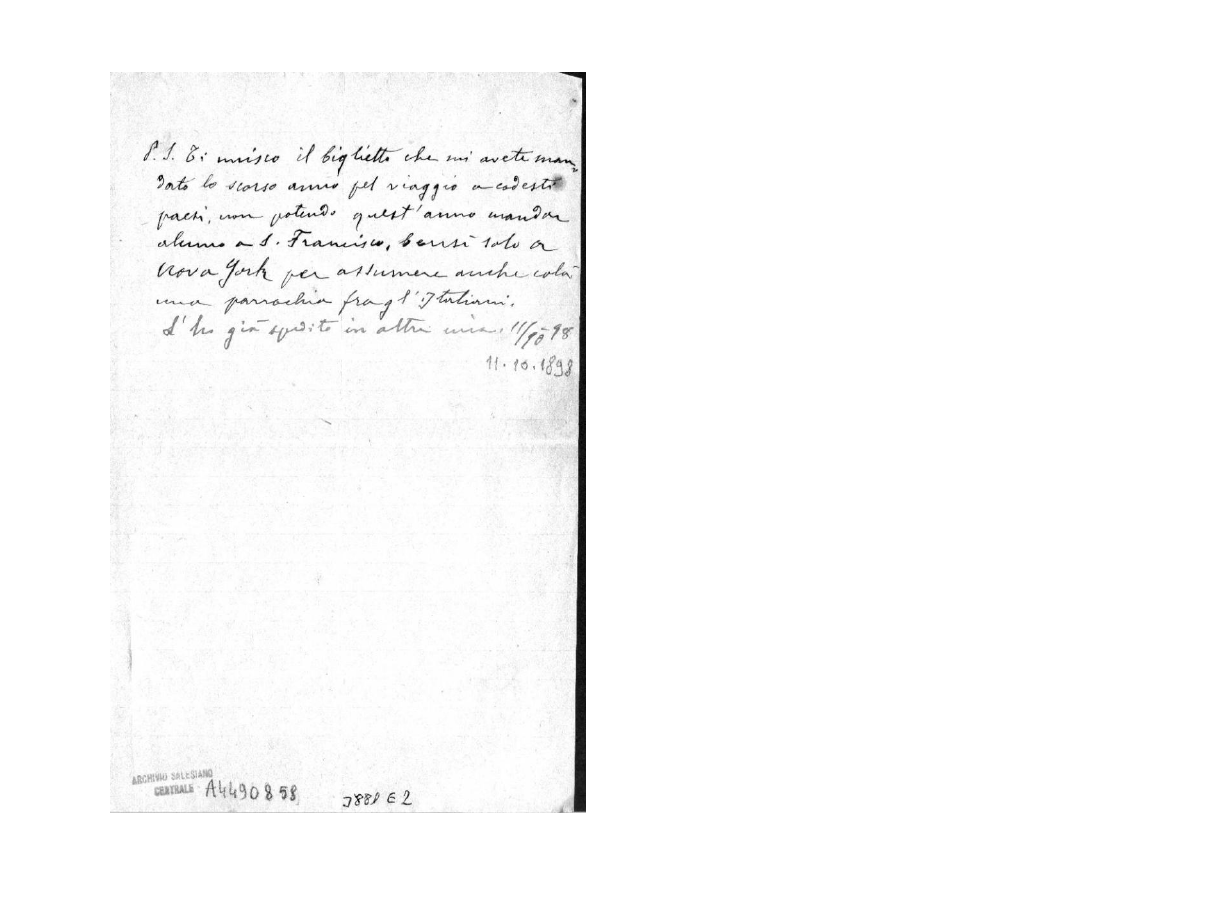 P. S. Ti unisco il biglietto che mi avete man=
dato lo scorso anno pel viaggio a codesti
paesi, non potendo quest'anno mandar
alcuno a S. Francisco, bensì solo a
Nova York per assumere anche colà
una parrochia fra gl'Italiani.
L'ho già spedito in altra mia. 11/10 98
11.10.1898
ARCHIVIO SALESIANO
CENTRALE A4490858 E2